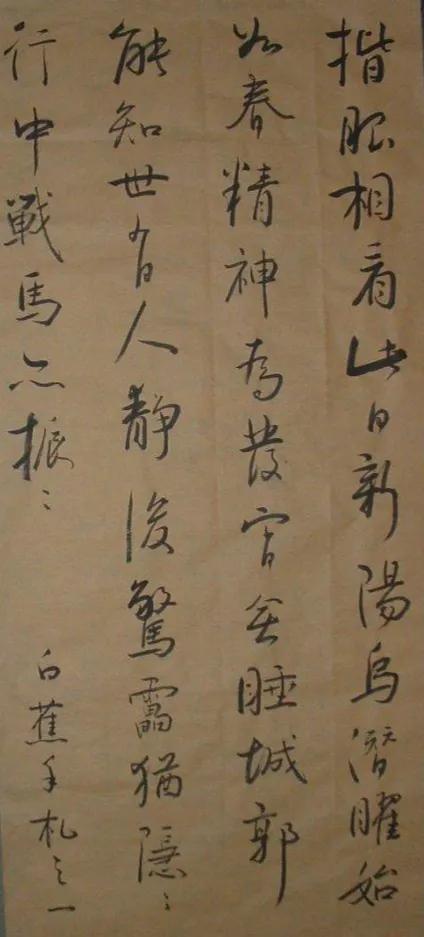 揩眼相看此日新陽烏潛曜始
如春精神為發宵無睡城郭
能知世有人靜後驚雷猶隱〻
行中戰馬亦振〻
白蕉手札之一